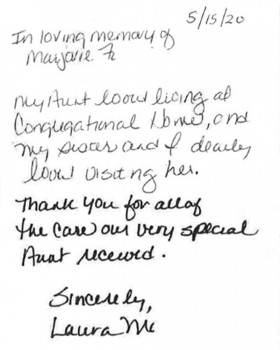 5/15/20
In loving memory of
Marjorie F
My Aunt loved living at
Congregational Home, and
my sister and I dearly
loved visiting her.
Thank you for all of
the care our very special
Aunt received.
Sincerely,
Laura Mc